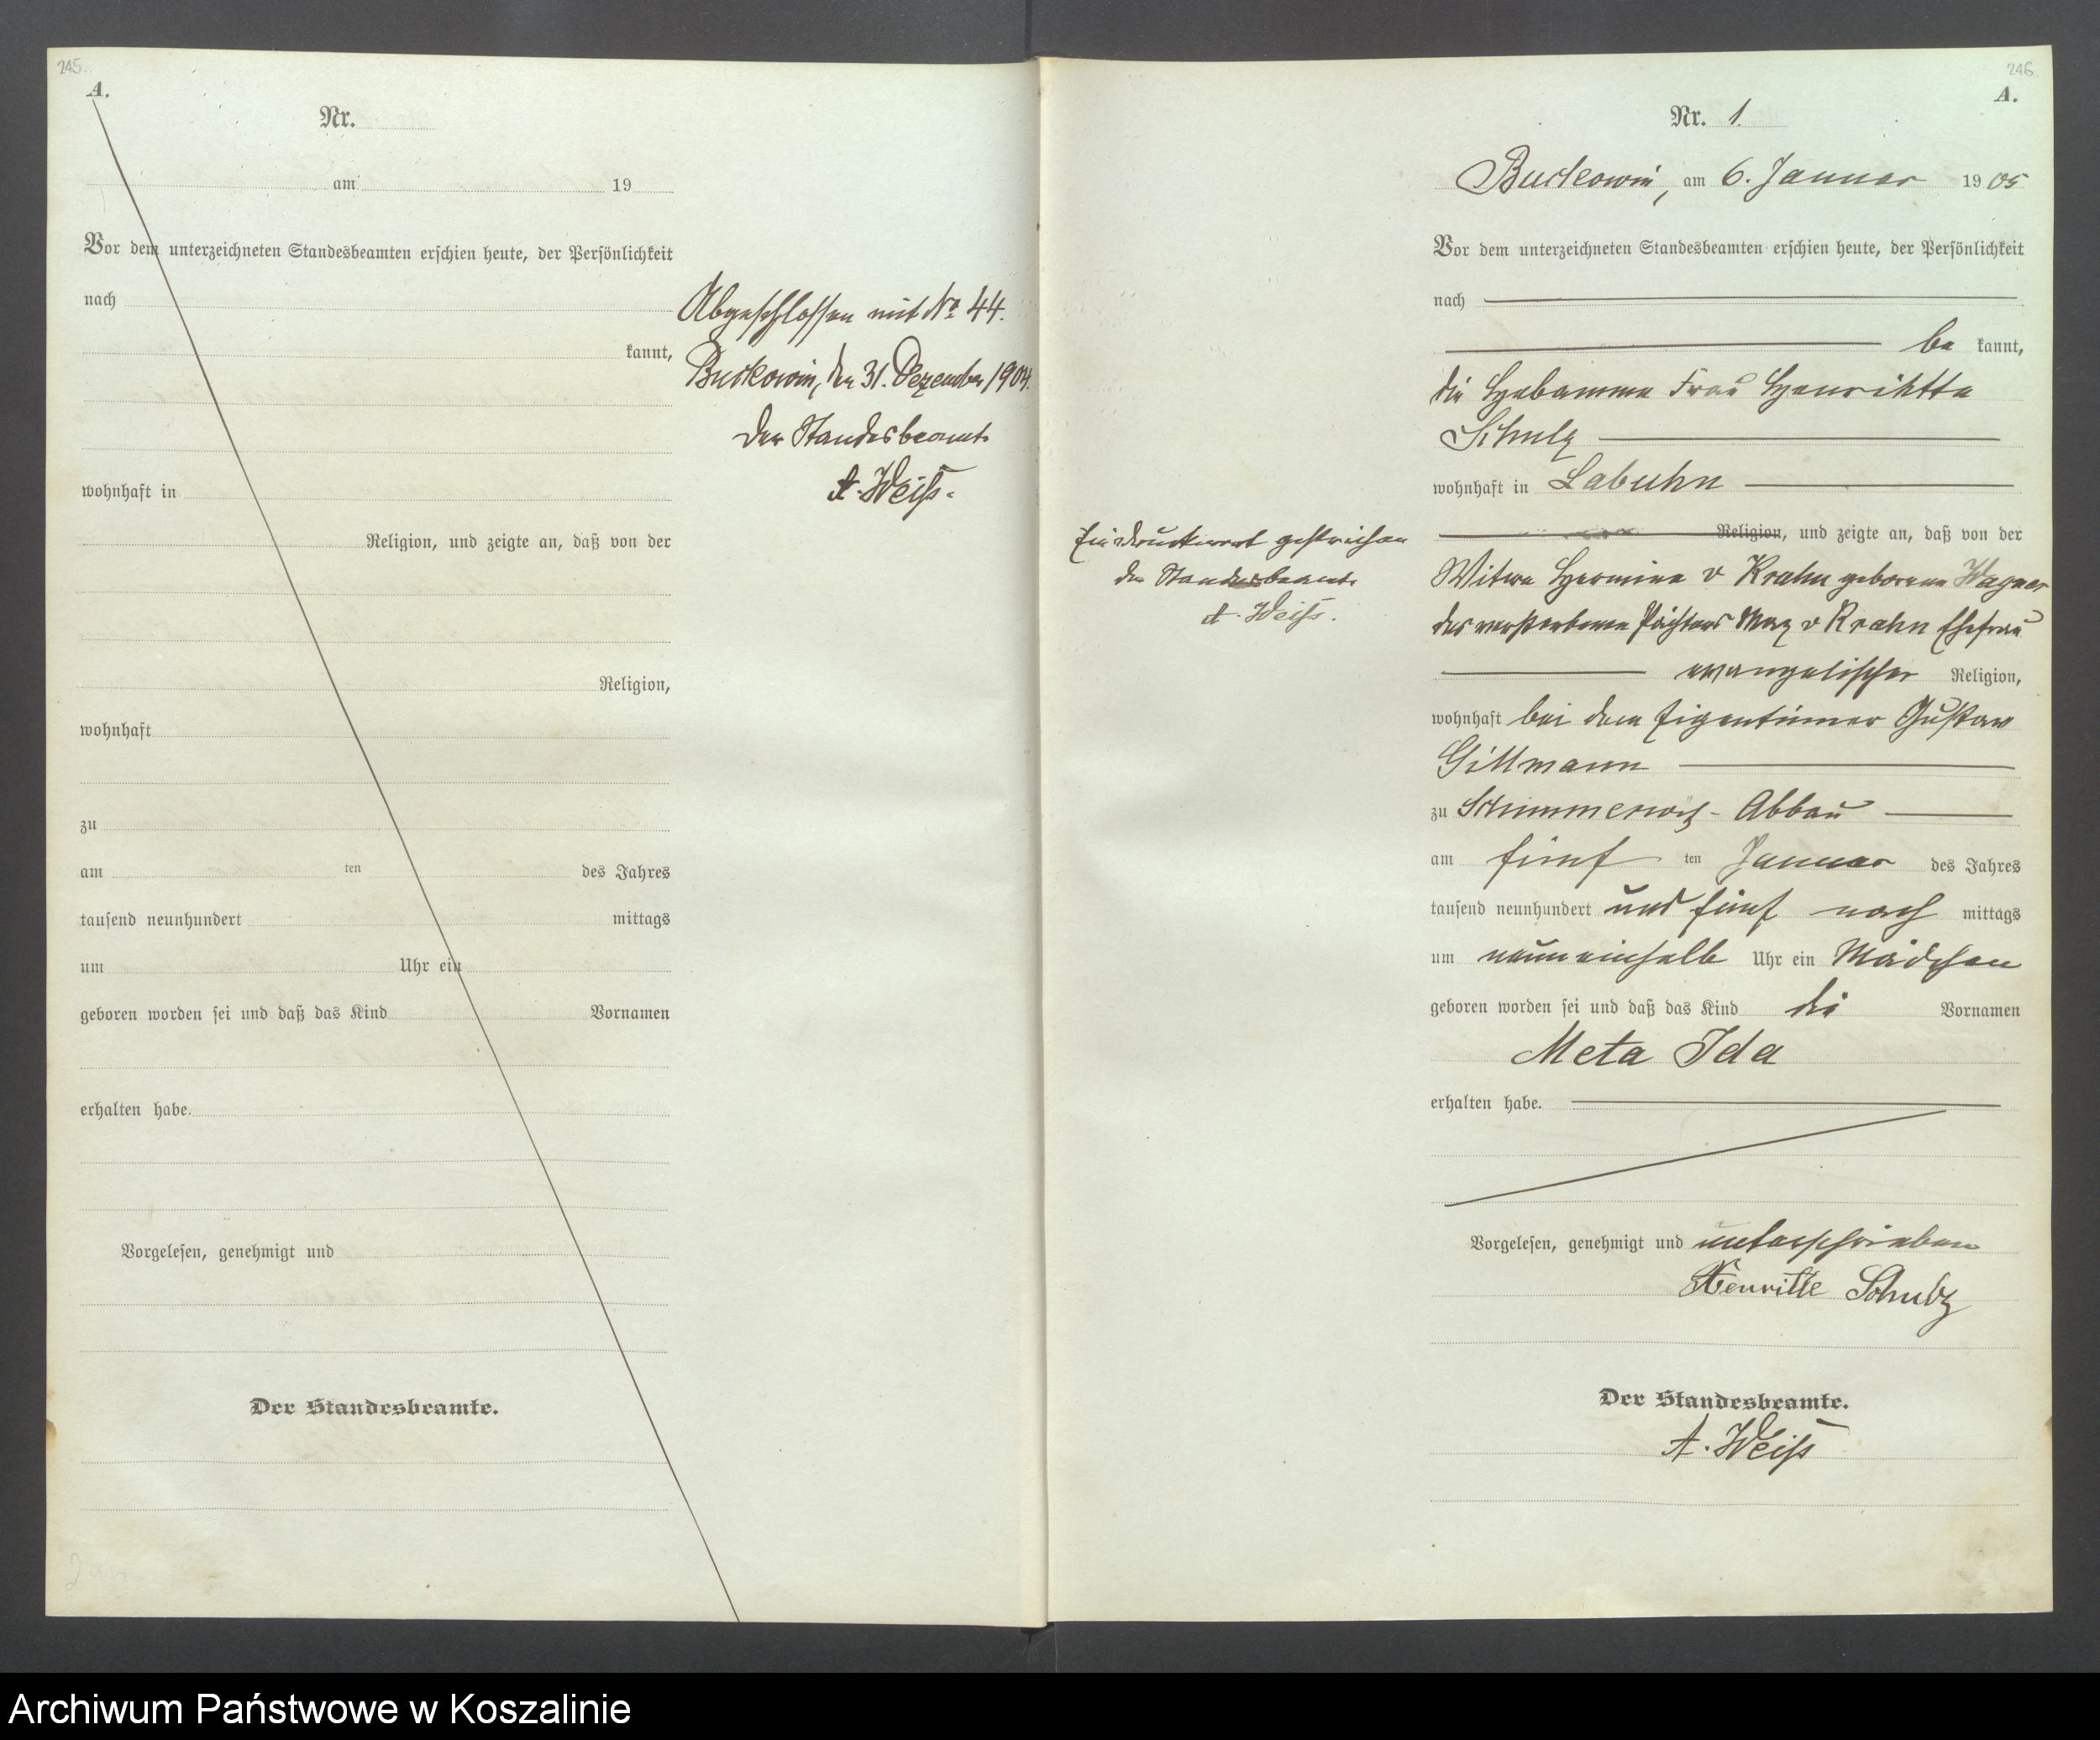 245.
A.
Nr.
am 19
Vor dem unterzeichneten Standesbeamten erschien heute, der Persönlichkeit
nach
kannt,
wohnhaft in
Religion, und zeigte an, daß von der
Religion,
wohnhaft
zu
am ten des Jahres
tausend neunhundert mittags
um Uhr ein
geboren worden sei und daß das Kind Vornamen
erhalten habe.
Vorgelesen, genehmigt und
Der Standesbeamte.
Abgeschlossen mit No 44.
Buckowin, den 31. Dezember 1904.
Der Standesbeamte
A. Weiß.
246
A.
Nr. 1.
Buckowin, am 6. Januar 1905
Vor dem unterzeichneten Standesbeamten erschien heute, der Persönlichkeit
nach
be kannt,
die Hebamme Frau Henriktte
Schulz
wohnhaft in Labuhn
Religion, und zeigte an, daß von der
Ein Druckwort gestrichen
der Standesbeamte
A. Weiß.
Witwe Hermine v Krahn geborene Wagner
des verstorbenen Pächters Max v Krahn Ehefrau
evangelischer Religion,
wohnhaft bei dem Eigentümer Gustav
Gillmann
zu Schimmerwitz - Abbau
am fünf ten Januar des Jahres
tausend neunhundert und fünf nach mittags
um neuneinhalb Uhr ein Mädchen
geboren worden sei und daß das Kind die Vornamen
Meta Ida
erhalten habe.
Vorgelesen, genehmigt und unterschrieben
Henritte Schulz
Der Standesbeamte.
A. Weiß
Archiwum Państwowe w Koszalinie